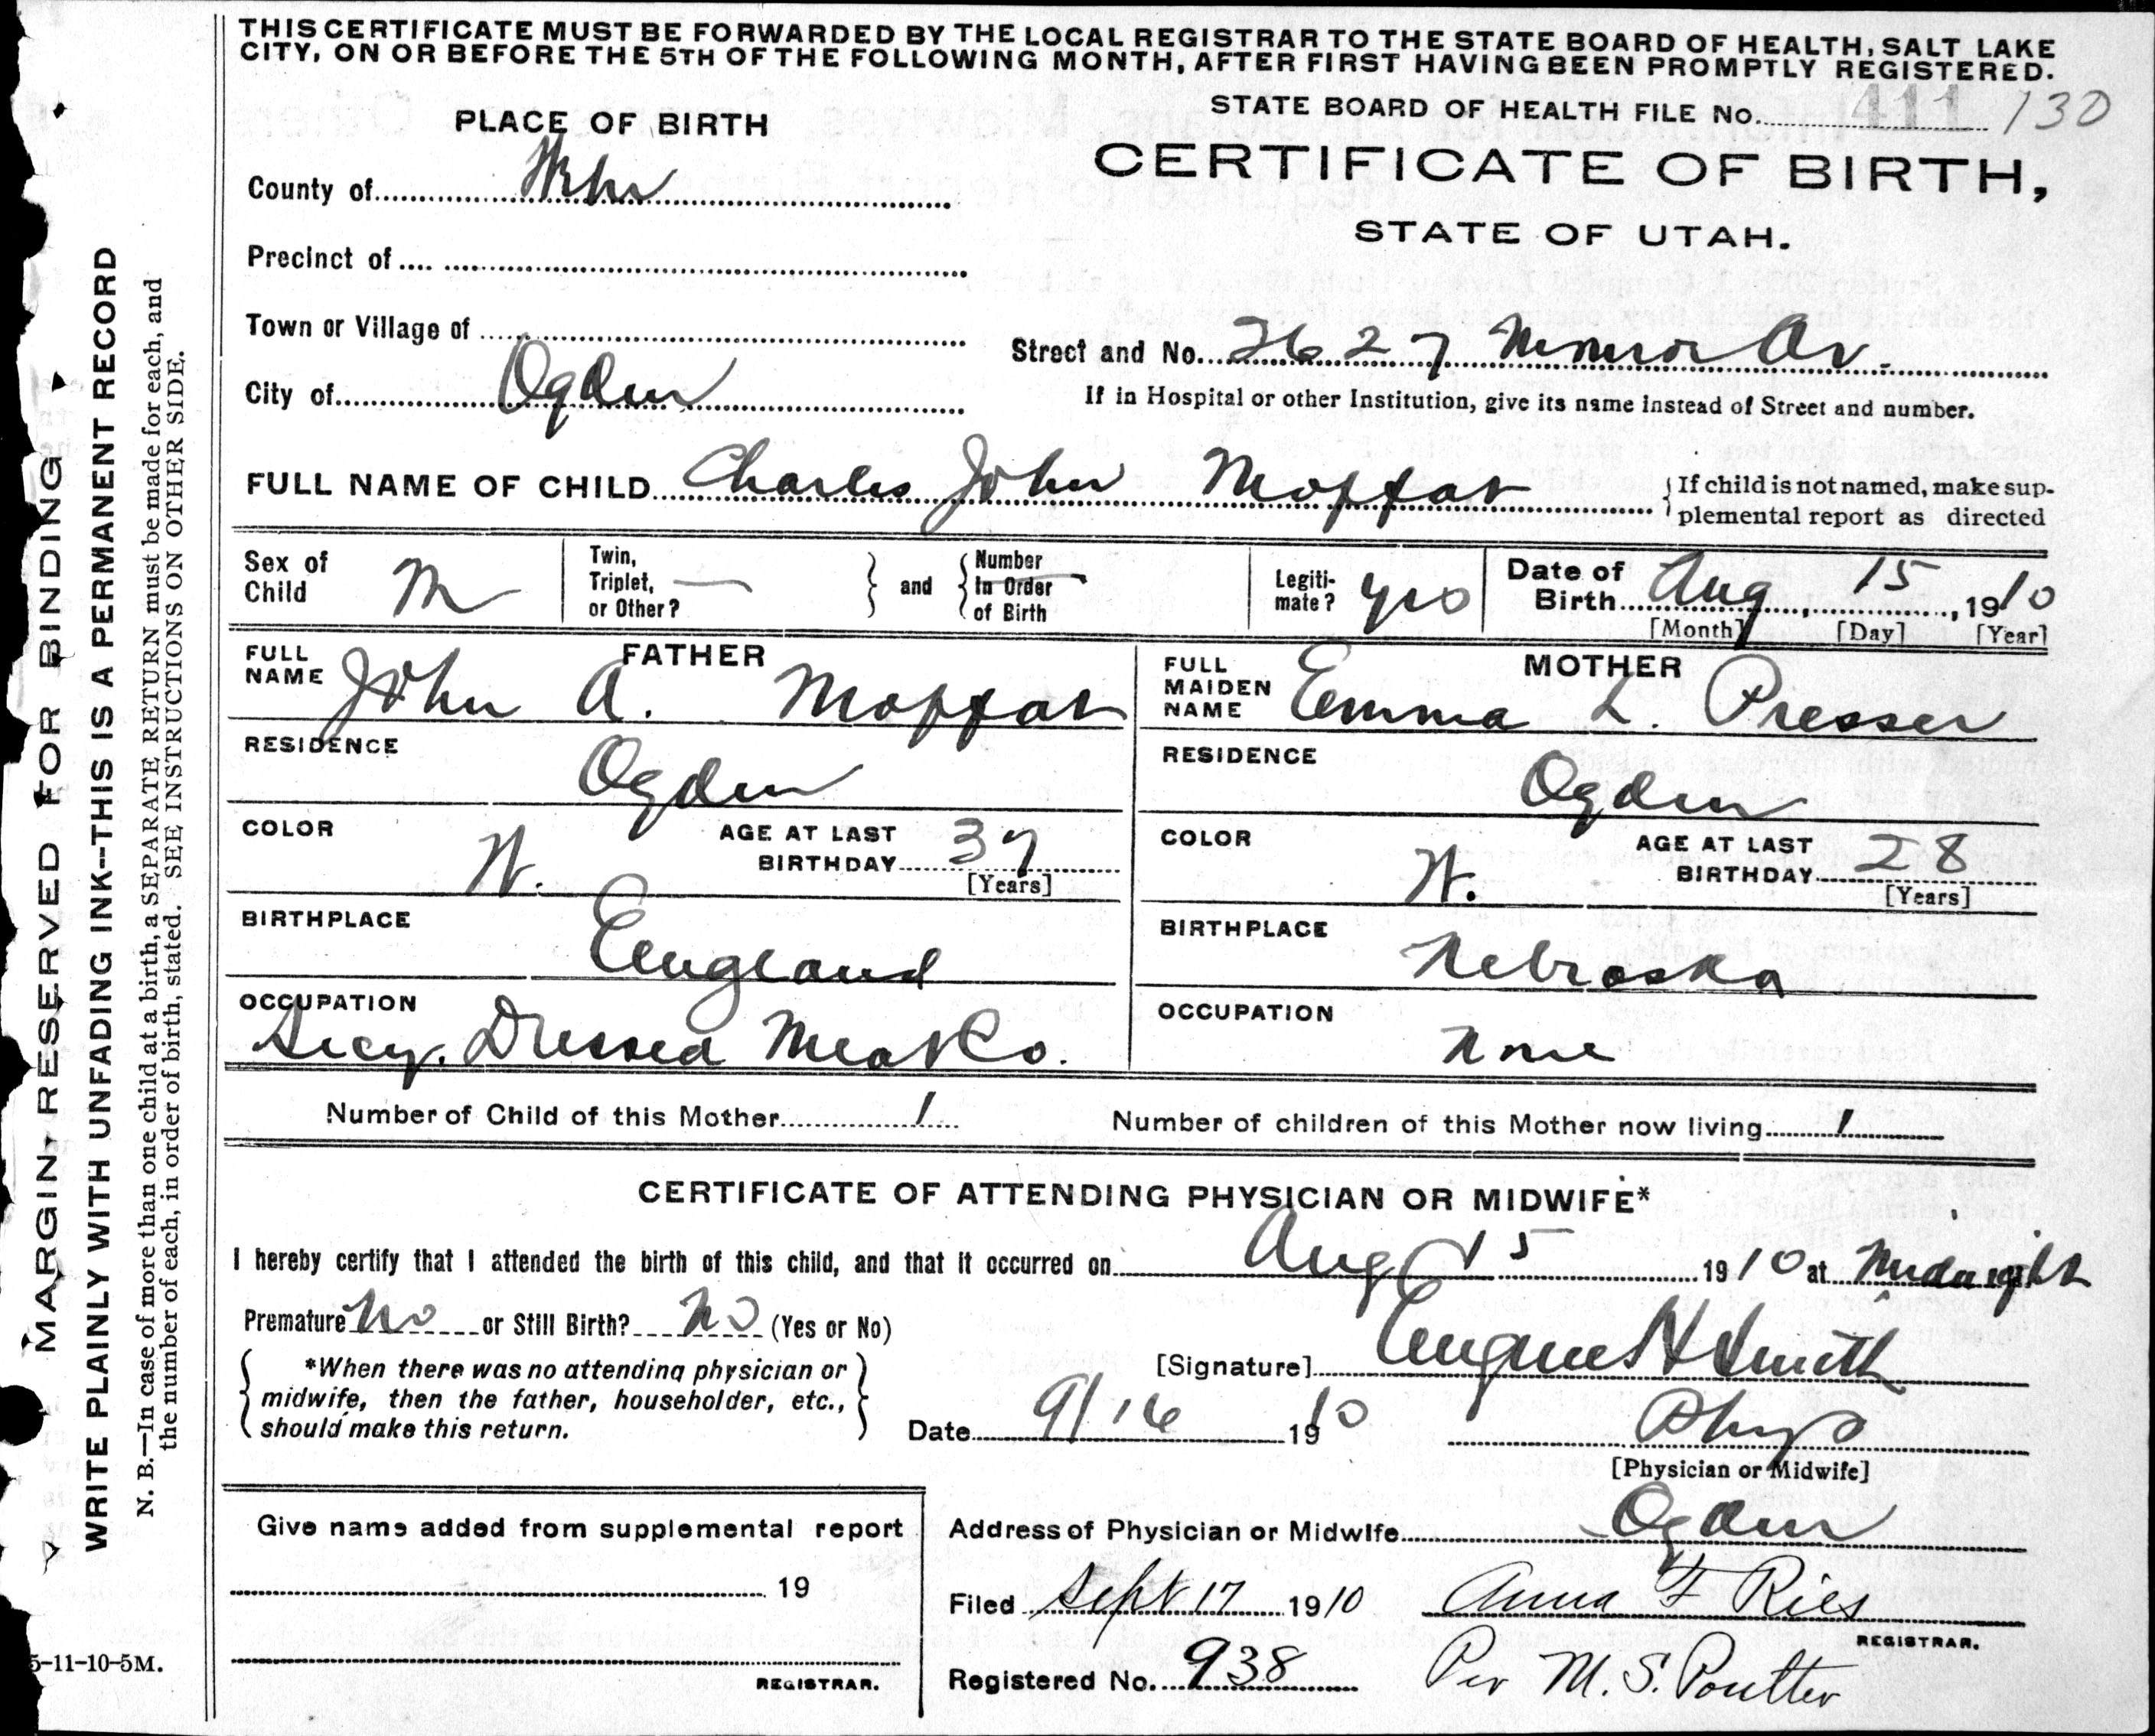 THIS CERTIFICATE MUST BE FORWARDED BY THE LOCAL REGISTRAR TO THE STATE BOARD OF HEALTH, SALT LAKE
CITY, ON OR BEFORE THE 5TH OF THE FOLLOWING MONTH, AFTER FIRST HAVING BEEN PROMPTLY REGISTERED.
STATE BOARD OF HEALTH FILE No. 411 130
PLACE OF BIRTH
CERTIFICATE OF BIRTH,
STATE OF UTAH.
County of
Precinct of
Town or Village of
Street and No. 2627 Monroe Av.
City of Ogden
If in Hospital or other Institution, give its name instead of Street and number.
FULL NAME OF CHILD Charles John Moffat
If child is not named, make sup-
plemental report as directed
Sex of Child M
Twin, Triplet, or Other? —
and
Number In Order of Birth —
Legiti-mate? yes
Date of Birth Aug, 15, 1910
[Month] [Day] [Year]
FATHER
FULL NAME John A. Moffat
RESIDENCE Ogden
COLOR W. AGE AT LAST BIRTHDAY 37
[Years]
BIRTHPLACE England
OCCUPATION
Secy. Dressed Meat Co.
MOTHER
FULL MAIDEN NAME Emma L. Presser
RESIDENCE Ogden
COLOR W. AGE AT LAST BIRTHDAY 28
[Years]
BIRTHPLACE Nebraska
OCCUPATION None
Number of Child of this Mother 1
Number of children of this Mother now living 1
CERTIFICATE OF ATTENDING PHYSICIAN OR MIDWIFE*
I hereby certify that I attended the birth of this child, and that it occurred on Aug 15 1910 at Midnight
Premature No or Still Birth? No (Yes or No)
*When there was no attending physician or
midwife, then the father, householder, etc.,
should make this return.
[Signature] Eugene H Smith
Date 9/16 1910
Phys
[Physician or Midwife]
Give name added from supplemental report
19
REGISTRAR.
Address of Physician or Midwife Ogden
Filed Sept 17 1910 Anna F Ries
REGISTRAR.
Registered No. 938 Per M. S. Poultter
MARGIN RESERVED FOR BINDING
WRITE PLAINLY WITH UNFADING INK--THIS IS A PERMANENT RECORD
N. B.—In case of more than one child at a birth, a SEPARATE RETURN must be made for each, and
the number of each, in order of birth, stated. SEE INSTRUCTIONS ON OTHER SIDE.
5-11-10-5M.